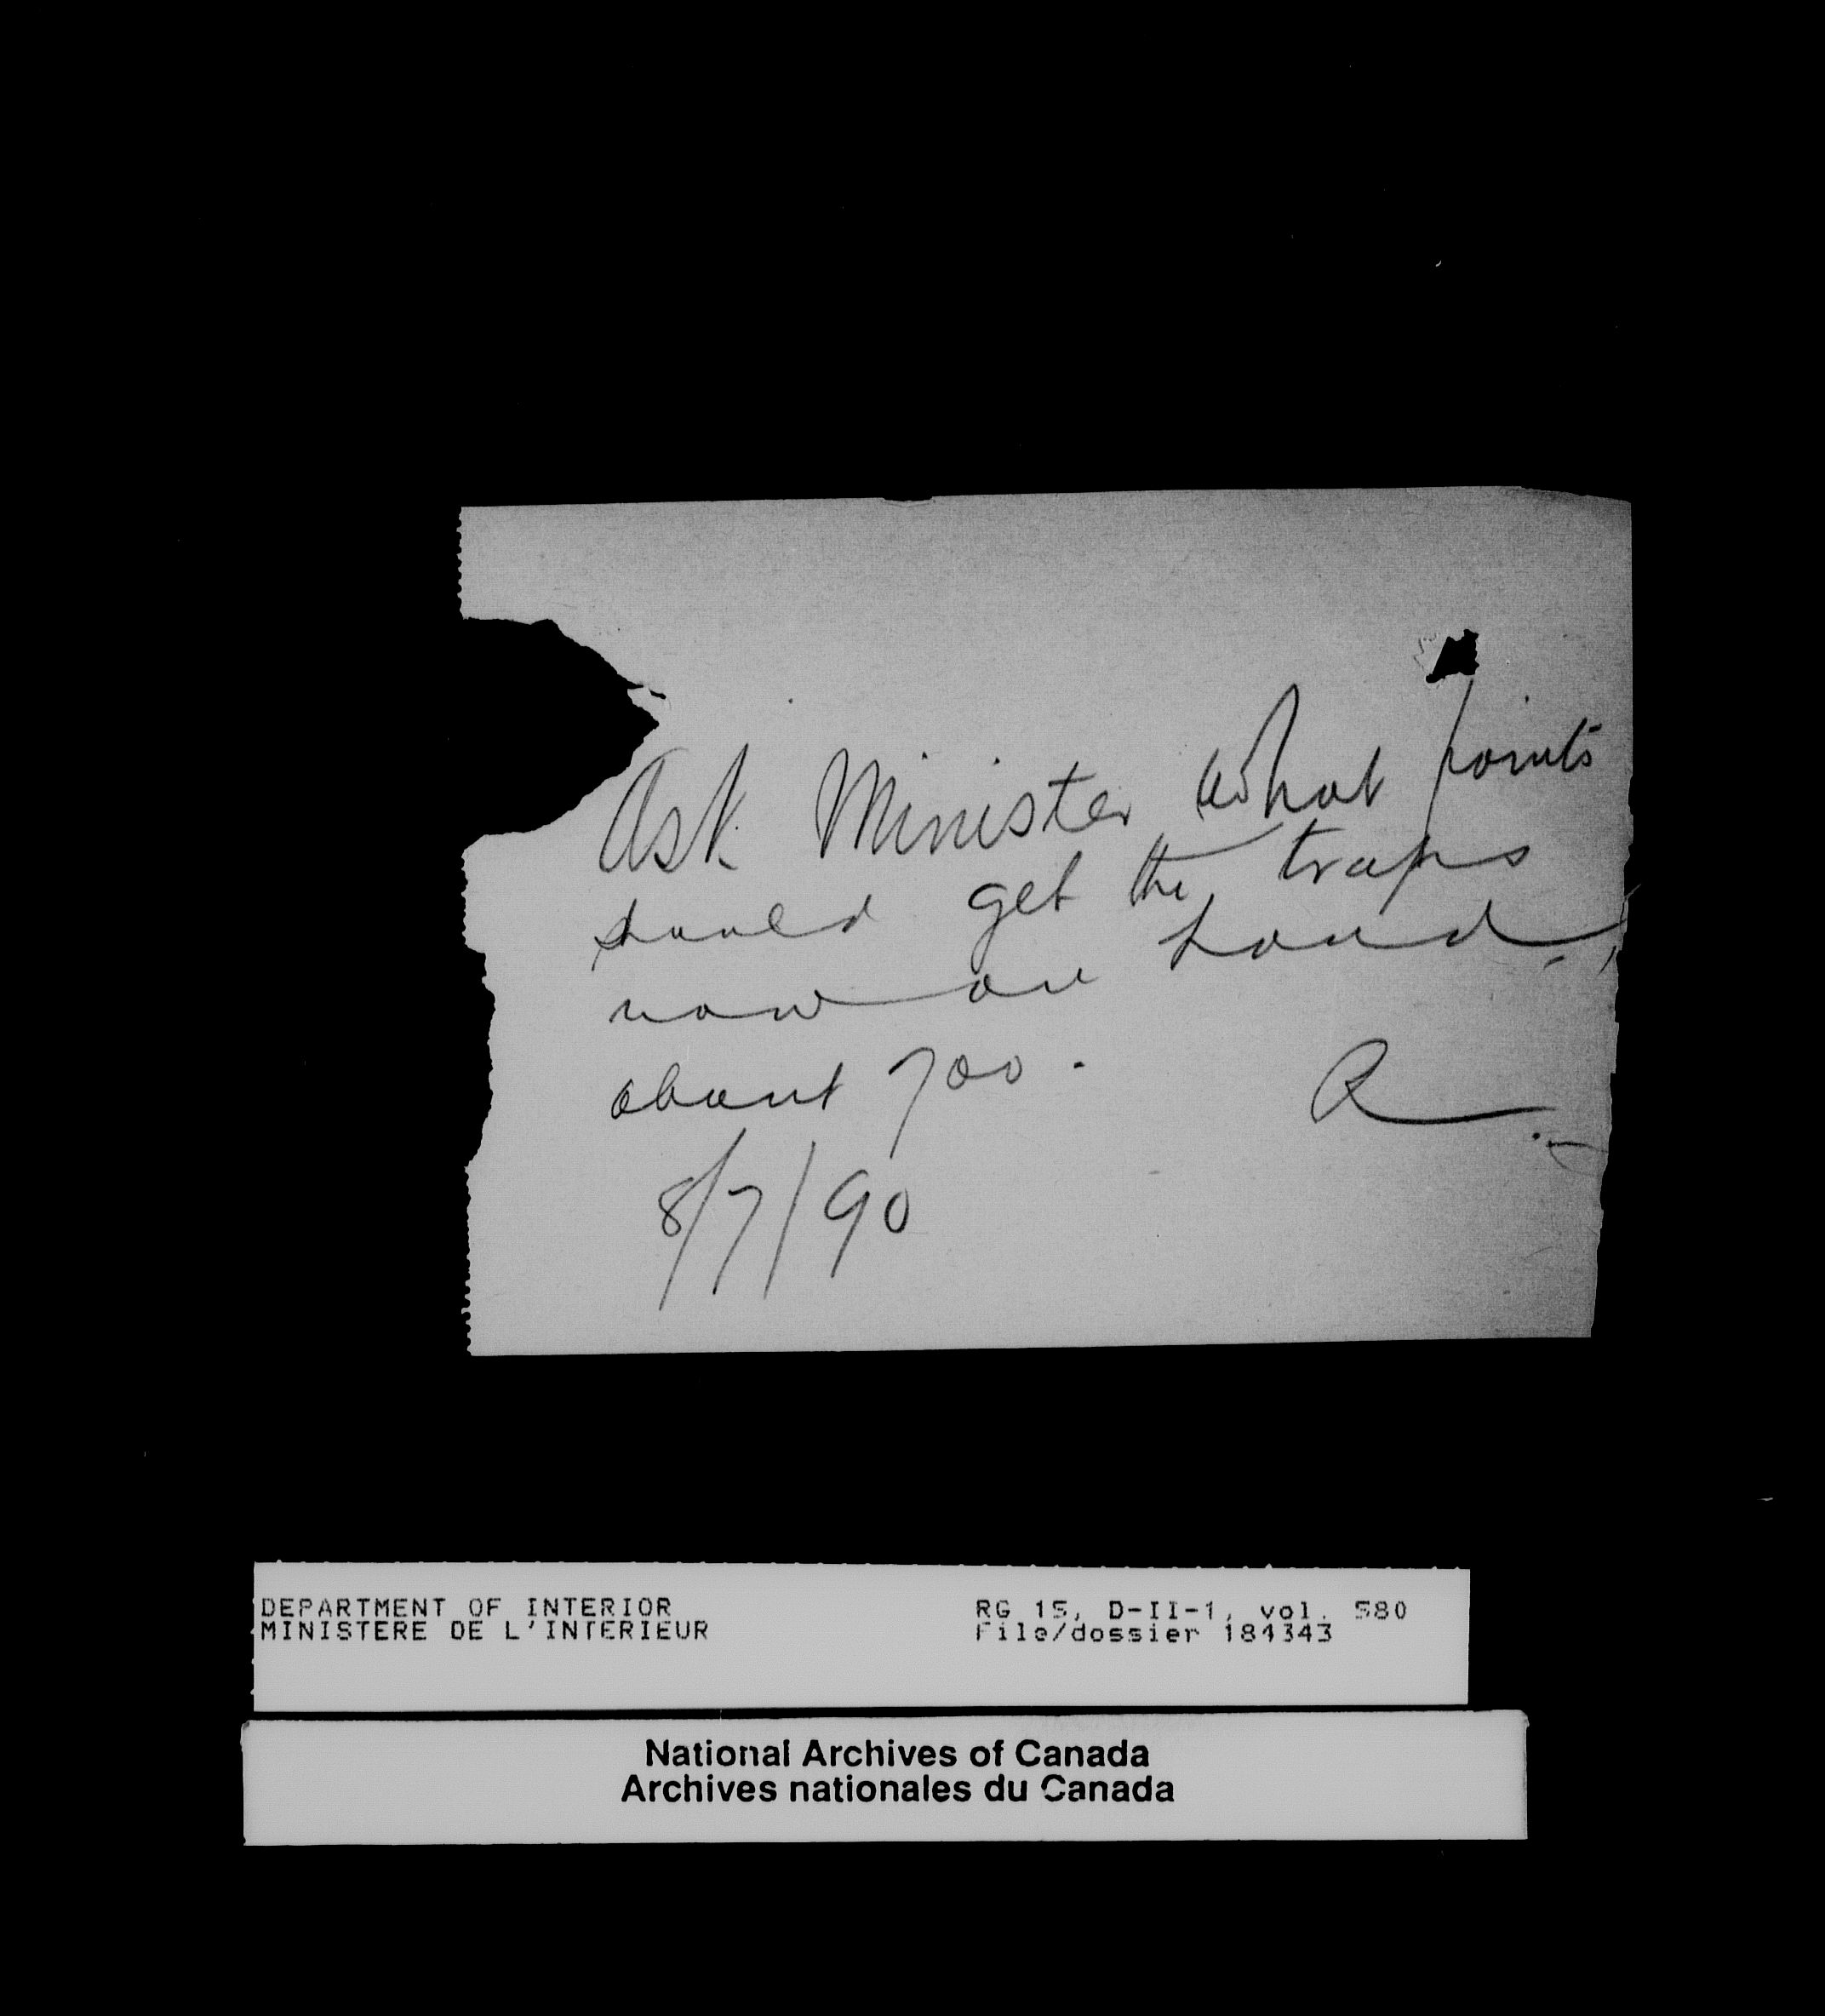 Ask Minister what points
should get the traps
now on hand,
about 700.
R
8/7/90
DEPARTMENT OF INTERIOR
MINISTERE DE L'INTERIEUR
RG 15, D-II-1, vol. 580
File/dossier 184343
National Archives of Canada
Archives nationales du Canada